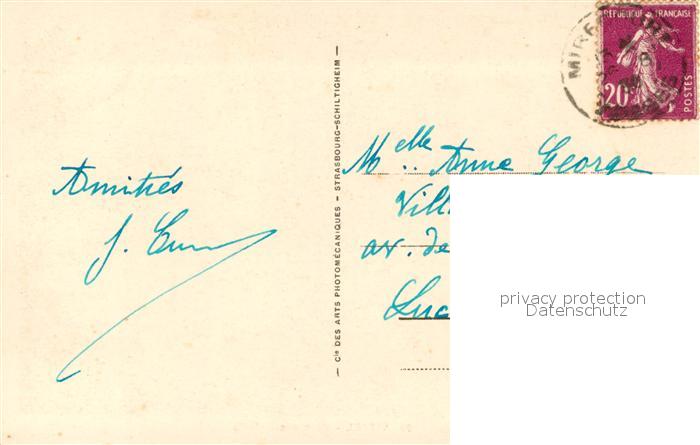 Amitiés
J.
Cie DES ARTS PHOTOMÉCANIQUES - STRASBOURG-SCHILTIGHEIM
RÉPUBLIQUE FRANÇAISE
20c
POSTES
Melle Anne George
Vill
av. de
Luc
privacy protection
Datenschutz